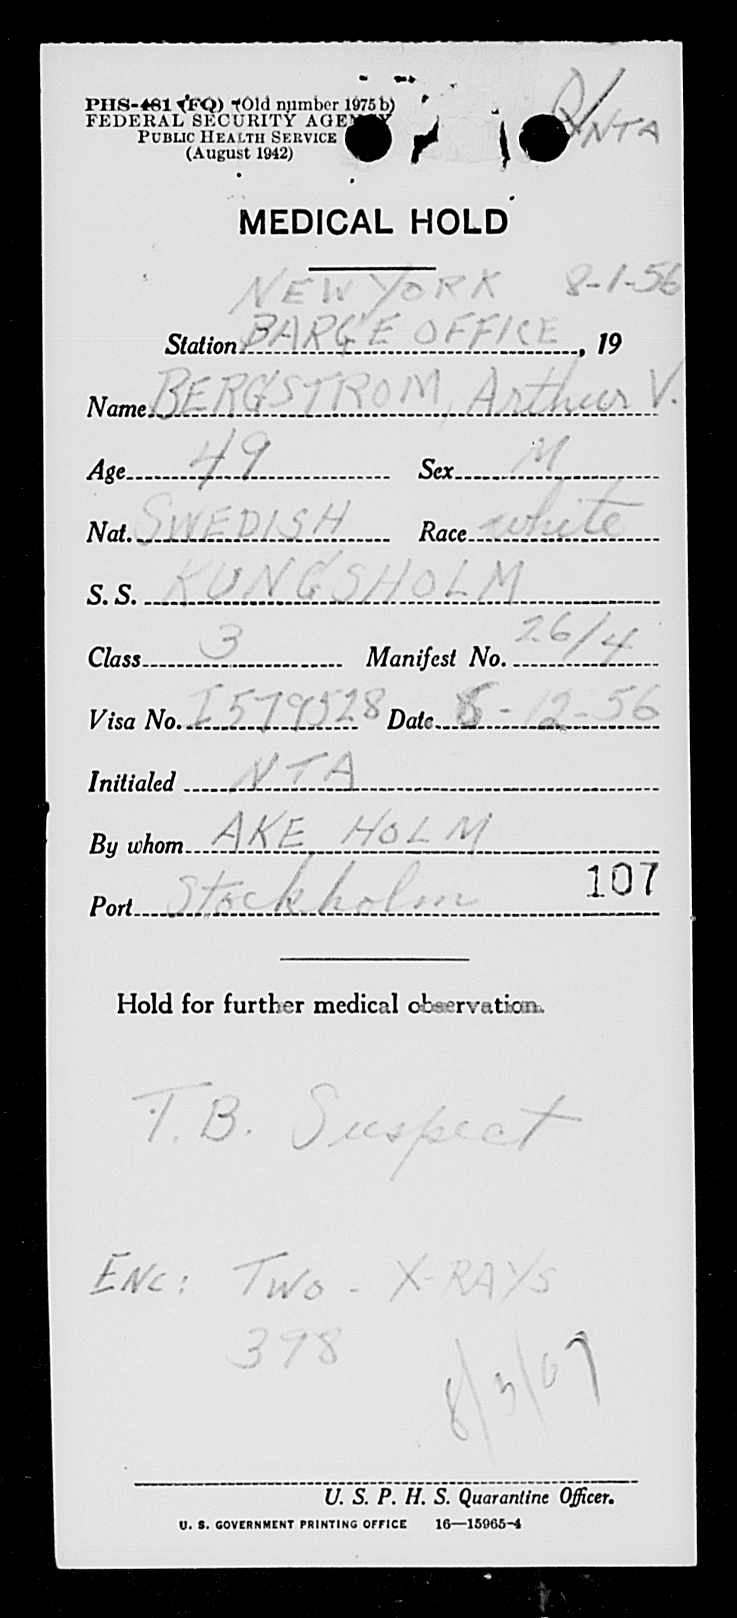 PHS-461 (FQ) (Old number 1975 b)
FEDERAL SECURITY AGENCY
PUBLIC HEALTH SERVICE
(August 1942)
NTA
MEDICAL HOLD
NEW YORK 8-1-56
Station BARGE OFFICE, 19
Name BERGSTROM, Arthur V.
Age 49 Sex M
Nat. SWEDISH Race white
S. S. KUNGSHOLM
Class 3 Manifest No. 26/4
Visa No. I579528 Date 6-12-56
Initialed NTA
By whom AKE HOLM
Port Stockholm 107
Hold for further medical observation.
T.B. Suspect
ENC: TWO - X-RAYS
398
8/3/07
U. S. P. H. S. Quarantine Officer.
U. S. GOVERNMENT PRINTING OFFICE 16—15965-4